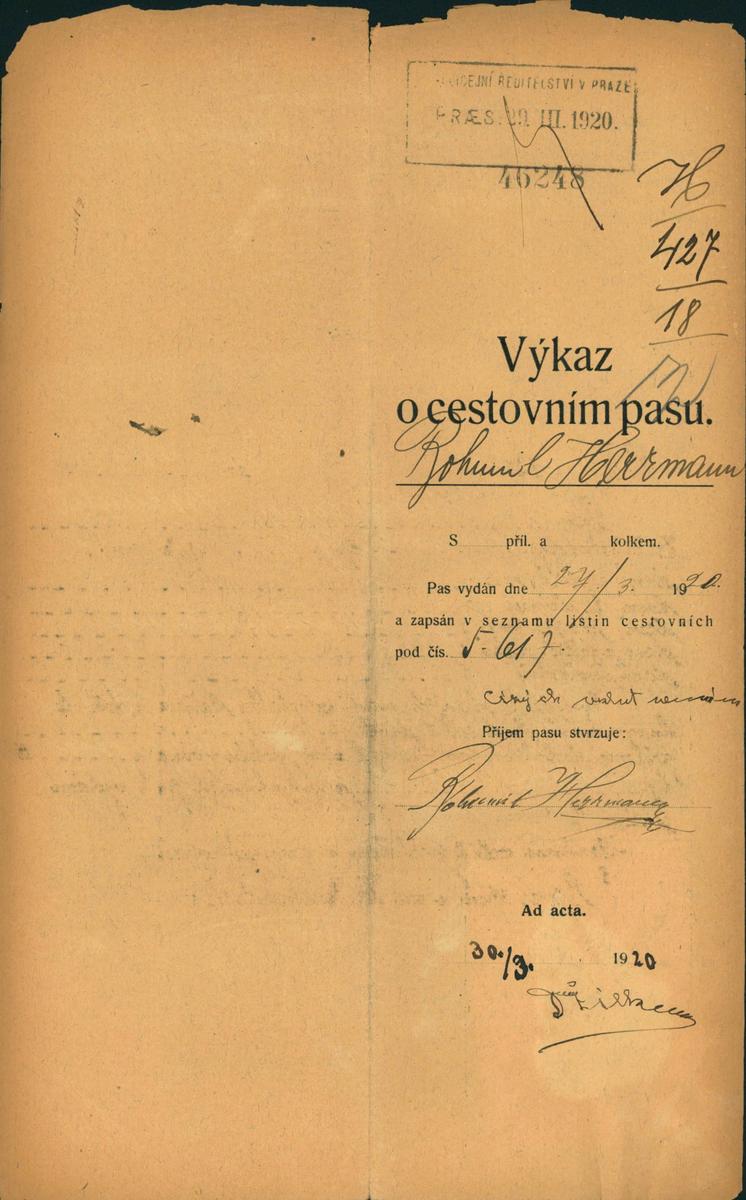 ŘEDITELSTVÍ V PRAZE
PRÆS. 29. III. 1920.
46248
H
427
18
Výkaz
o cestovním pasu.
Bohumil Herrmann
S příl. a kolkem.
Pas vydán dne 27/3. 1920.
a zapsán v seznamu listin cestovních
pod čís. 5-617.
Příjem pasu stvrzuje:
Bohumil Herrmann
Ad acta.
30./3. 1920